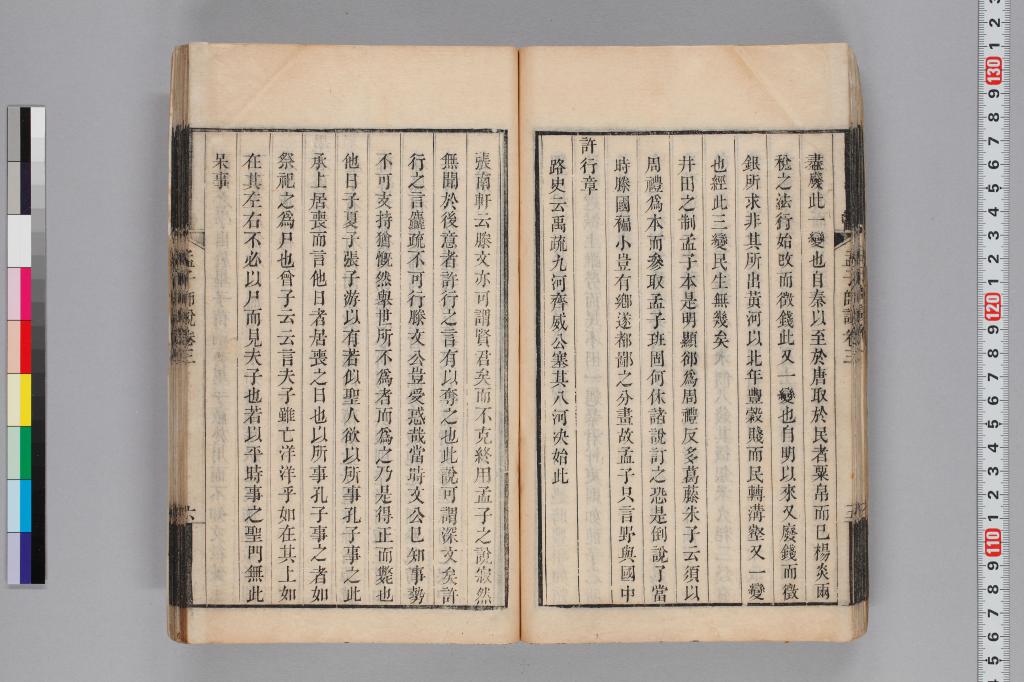 盡廢此一變也自秦以至於唐取於民者粟帛而已楊炎兩
稅之法行始改而徵錢此又一變也自明以來又廢錢而徵
銀所求非其所出黃河以北年豐穀賤而民轉溝壑又一變
也經此三變民生無幾矣
井田之制孟子本是明顯郤爲周禮反多葛藤朱子云須以
周禮爲本而參取孟子班固何休諸說訂之恐是倒說了當
時滕國褊小豈有鄉遂都鄙之分畫故孟子只言野與國中
許行章
路史云禹疏九河齊威公塞其八河決始此
孟子師說卷三
五
張南軒云滕文亦可謂賢君矣而不克終用孟子之說寂然
無聞於後意者許行之言有以奪之也此說可謂深文矣許
行之言麤疏不可行滕文公豈受惑哉當時文公已知事勢
不可支持猶慨然舉世所不爲者而爲之乃是得正而斃也
他日子夏子張子游以有若似聖人欲以所事孔子事之此
承上居喪而言他日者居喪之日也以所事孔子事之者如
祭祀之爲尸也曾子云云言夫子雖亡洋洋乎如在其上如
在其左右不必以尸而見夫子也若以平時事之聖門無此
呆事
孟子師說卷三
六
130
120
110